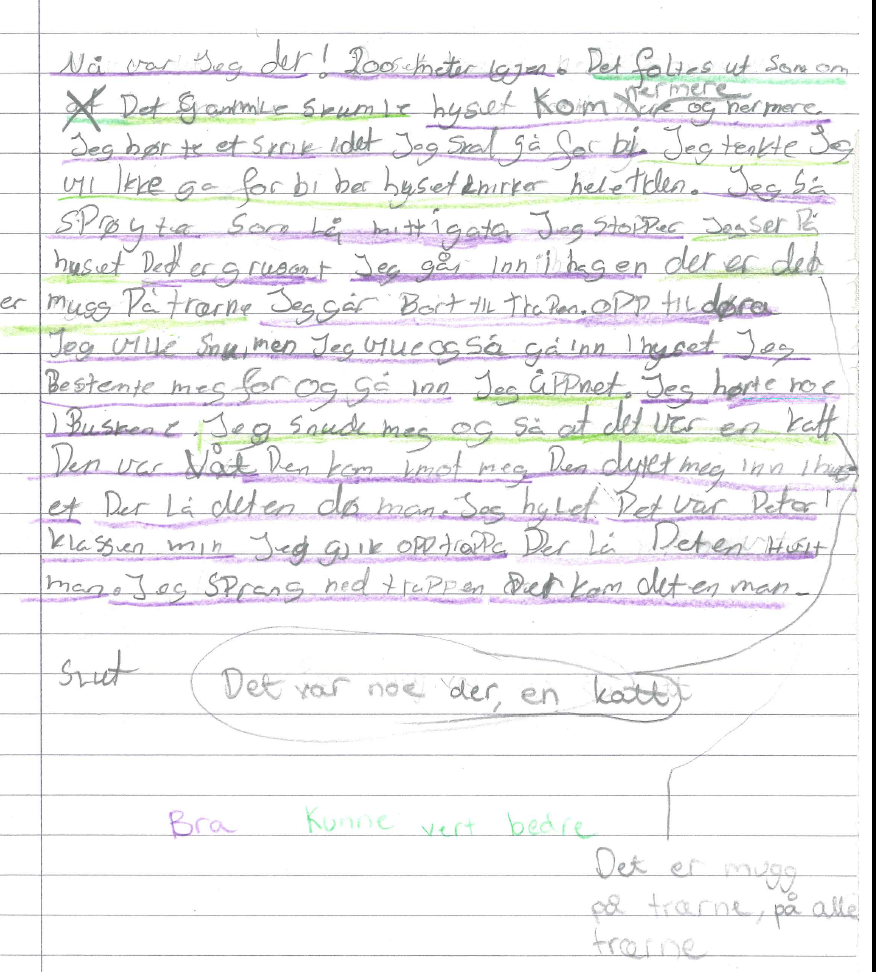 Nå var Jeg der! 200 meter Igjen. Det føltes ut Som om
Det grammle skumle hyset kom nermere og nermere
Jeg hør te et skrik Idet Jeg Skal gå for bi. Jeg tenkte Jeg
vil Ikke gå for bi ber hyset knirker hele tiden. Jeg Så
SPrøyter Som Lå mitt i gata Jeg Stopper Jeg Ser På
hyset Det er grusant Jeg går Inn i hagen der er det
er mugg På trærne Jeg går Bort til traPen. OPP til døra
Jeg ville Snu, men Jeg ville og så gå inn i hyset Jeg
Bestemte meg for og gå inn Jeg ÅPPnet. Jeg hørte noe
i Buskene. Jeg Snude meg og så at det var en katt
Den var Våt Den kam imot meg Den dyttet meg inn i hus
et Der Lå det en dø man. Jeg hylet Det var Peter i
klassen min Jeg gikk OPP trappa Der Lå Det en Hvit
man. Jeg SPrang ned traPPen Der kom det en man.
Slut
Det var noe der, en katt
Bra Kunne vert bedre
Det er mugg
på trærne, på alle
trærne